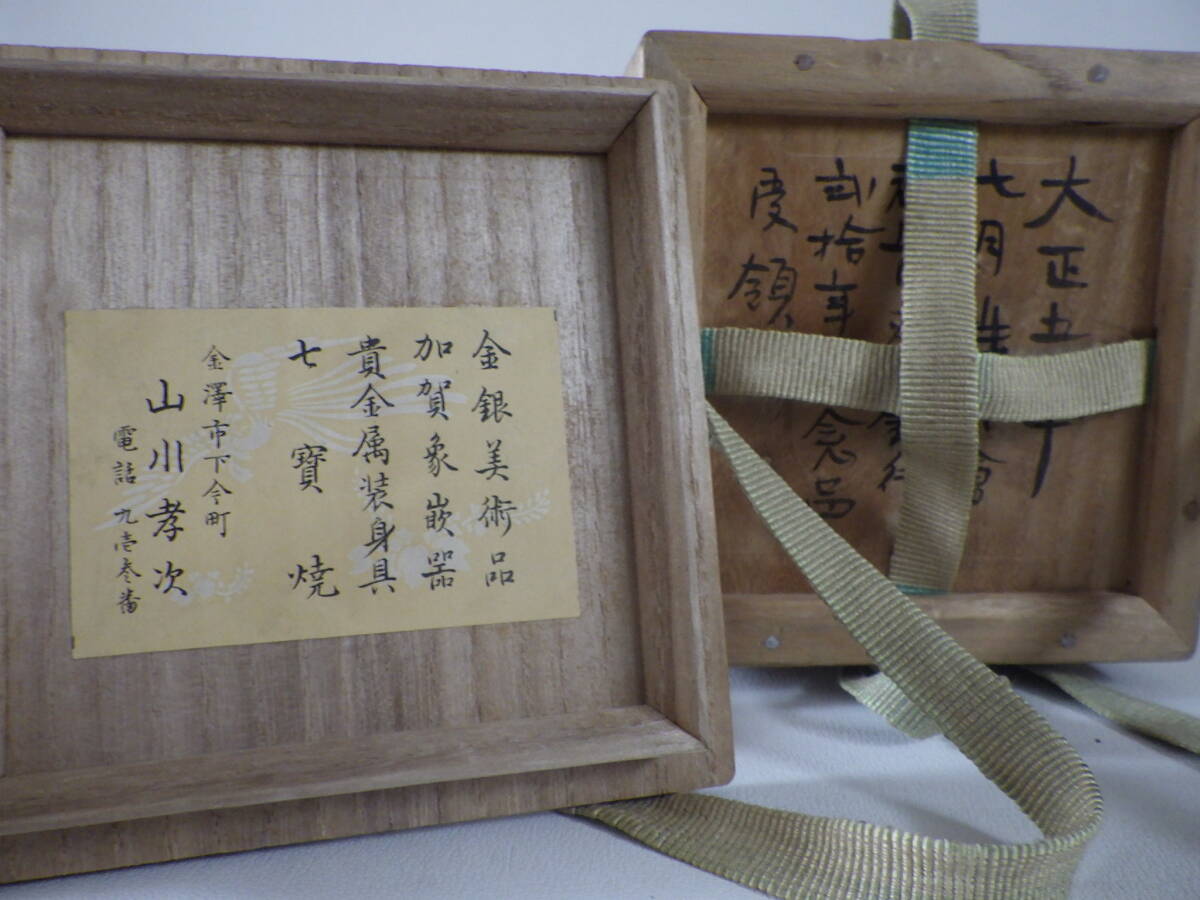 金銀美術品
加賀象嵌器
貴金属装身具
七寳焼
金澤市下今町
山川孝次
電話九壱参番
大正五
七月
弐拾年 念品
受領